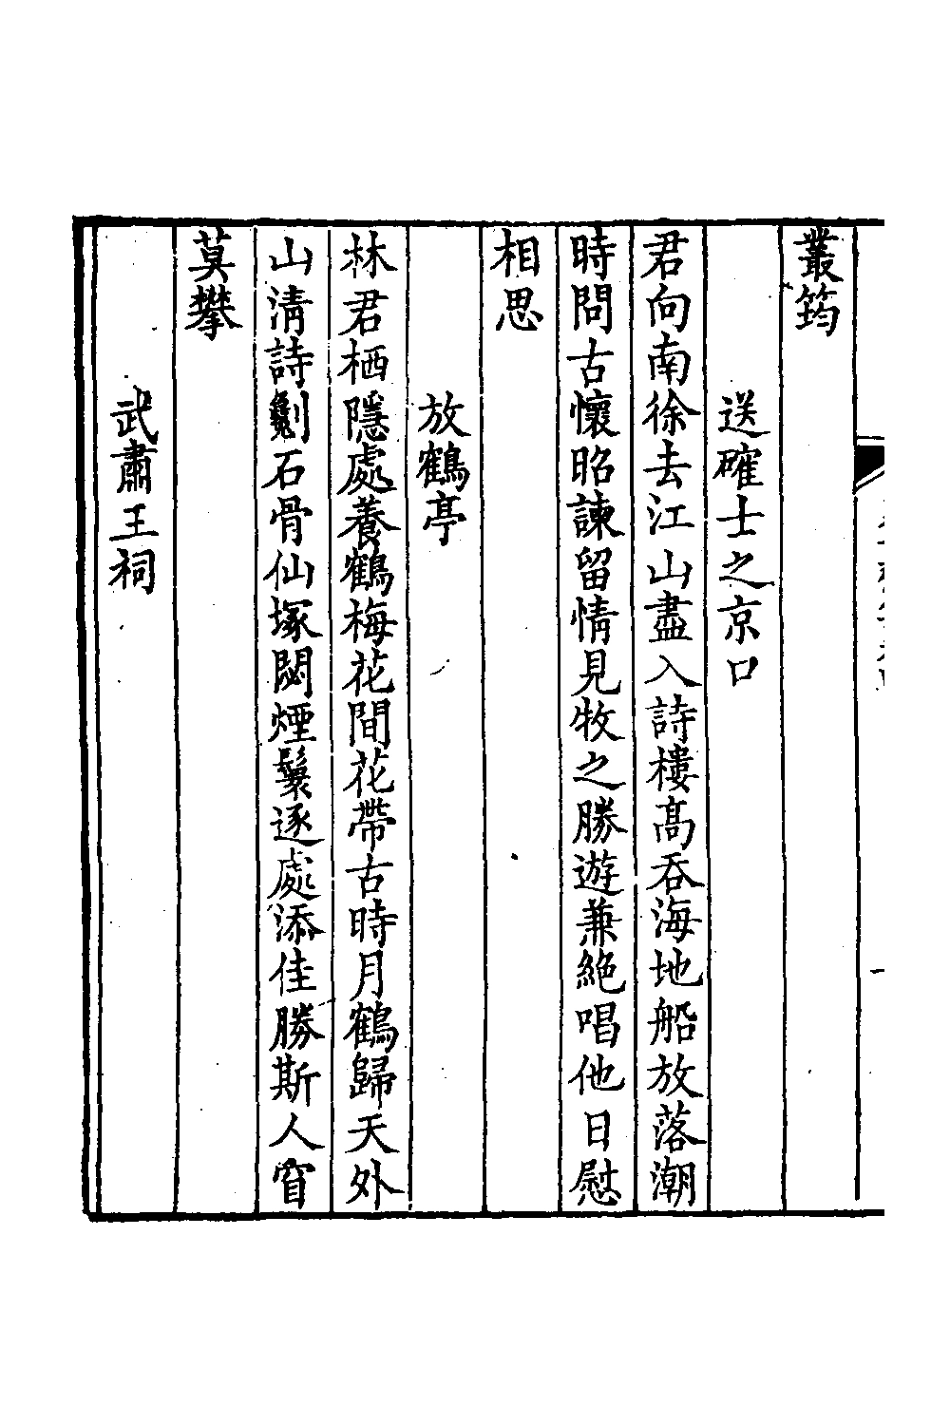 叢筠
送確士之京口
君向南徐去江山盡入詩樓高吞海地船放落潮
時問古懷昭諫留情見牧之勝遊兼絶唱他日慰
相思
放鶴亭
林君栖隱處養鶴梅花間花帶古時月鶴歸天外
山清詩劖石骨仙塚閟煙鬟逐處添佳勝斯人窅
莫攀
武肅王祠